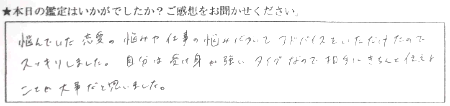 ★本日の鑑定はいかがでしたか?ご感想をお聞かせください。
悩んでいした恋愛の悩みや仕事の悩みについてアドバイスをいただけたので
スッキリしました。自分は受け身が強いタイプなので相手にきちんと伝える
ことが大事だと思いました。